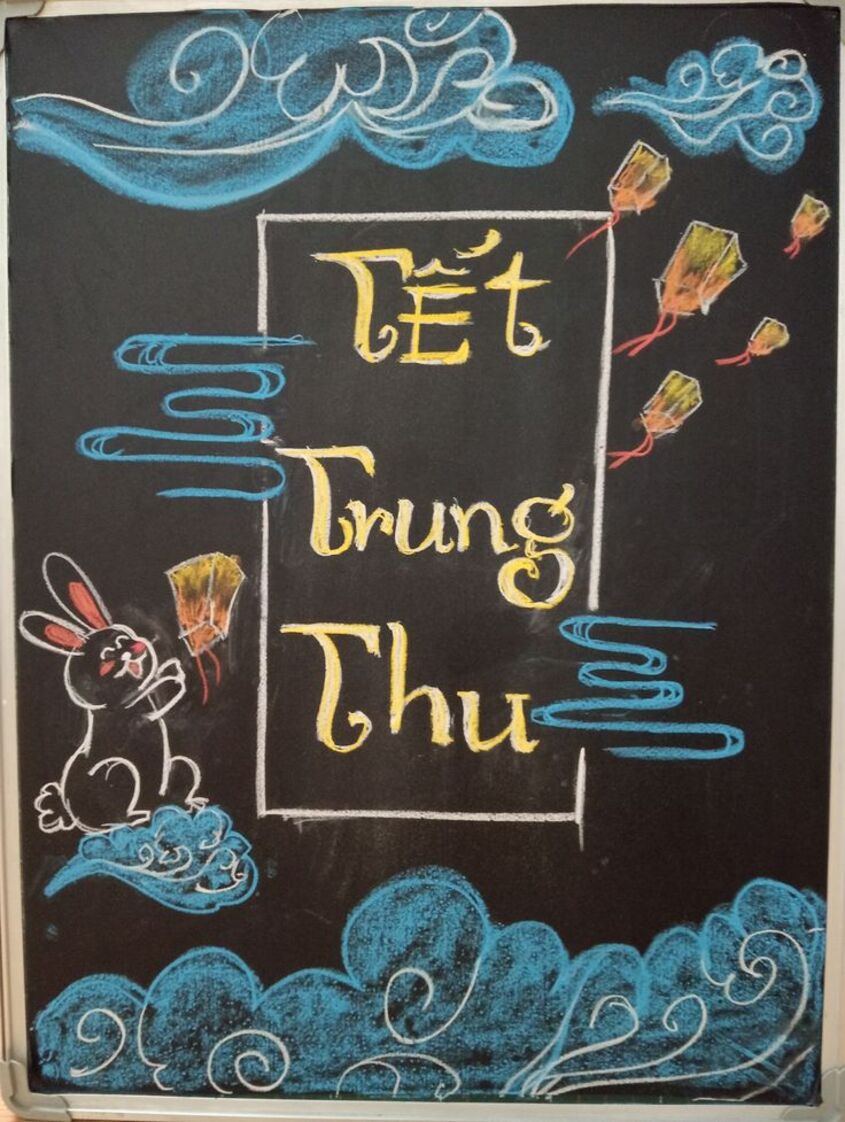 Tết
Trung
Thu